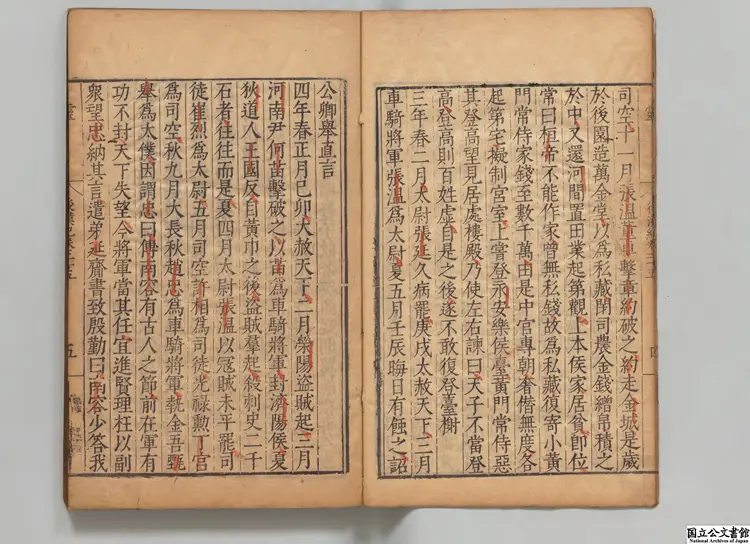 司空十一月張溫董卓擊章約破之約走金城是歲
於後園造萬金堂以為私藏閉司農金錢繒帛積之
於中又還河間置田業起第觀上本侯家居貧即位
常曰桓帝不能作家曾無私錢故為私藏復寄小黃
門常侍家錢至數千萬由是中官專朝奢僭無度各
起第宅擬制宮室上嘗登永安樂侯臺黃門常侍惡
其登高望見居處樓殿乃使左右諫曰天子不當登
高登高則百姓虛自是之後遂不敢復登臺榭
三年春二月太尉張延久病罷庚戌大赦天下二月
車騎將軍張溫為太尉夏五月壬辰晦日有蝕之詔
公卿舉直言
四年春正月己卯大赦天下二月滎陽盜賊起三月
河南尹何苗擊破之以苗為車騎將軍封濟陽侯夏
狄道人王國反自黃巾之後盜賊羣起殺刺史二千
石者往往而是夏四月太尉張溫以冦賊未平罷司
徒崔烈為太尉五月司空許相為司徒光祿勲丁宮
為司空秋九月大長秋趙忠為車騎將軍執金吾甄
舉為太僕因謂忠曰傅南容有古人之節前在軍有
功不封天下失望今將軍當其任宜進賢理枉以副
衆望忠納其言遣弟延齎書致殷勤曰南容少答我
五
國立公文書館
National Archives of Japan